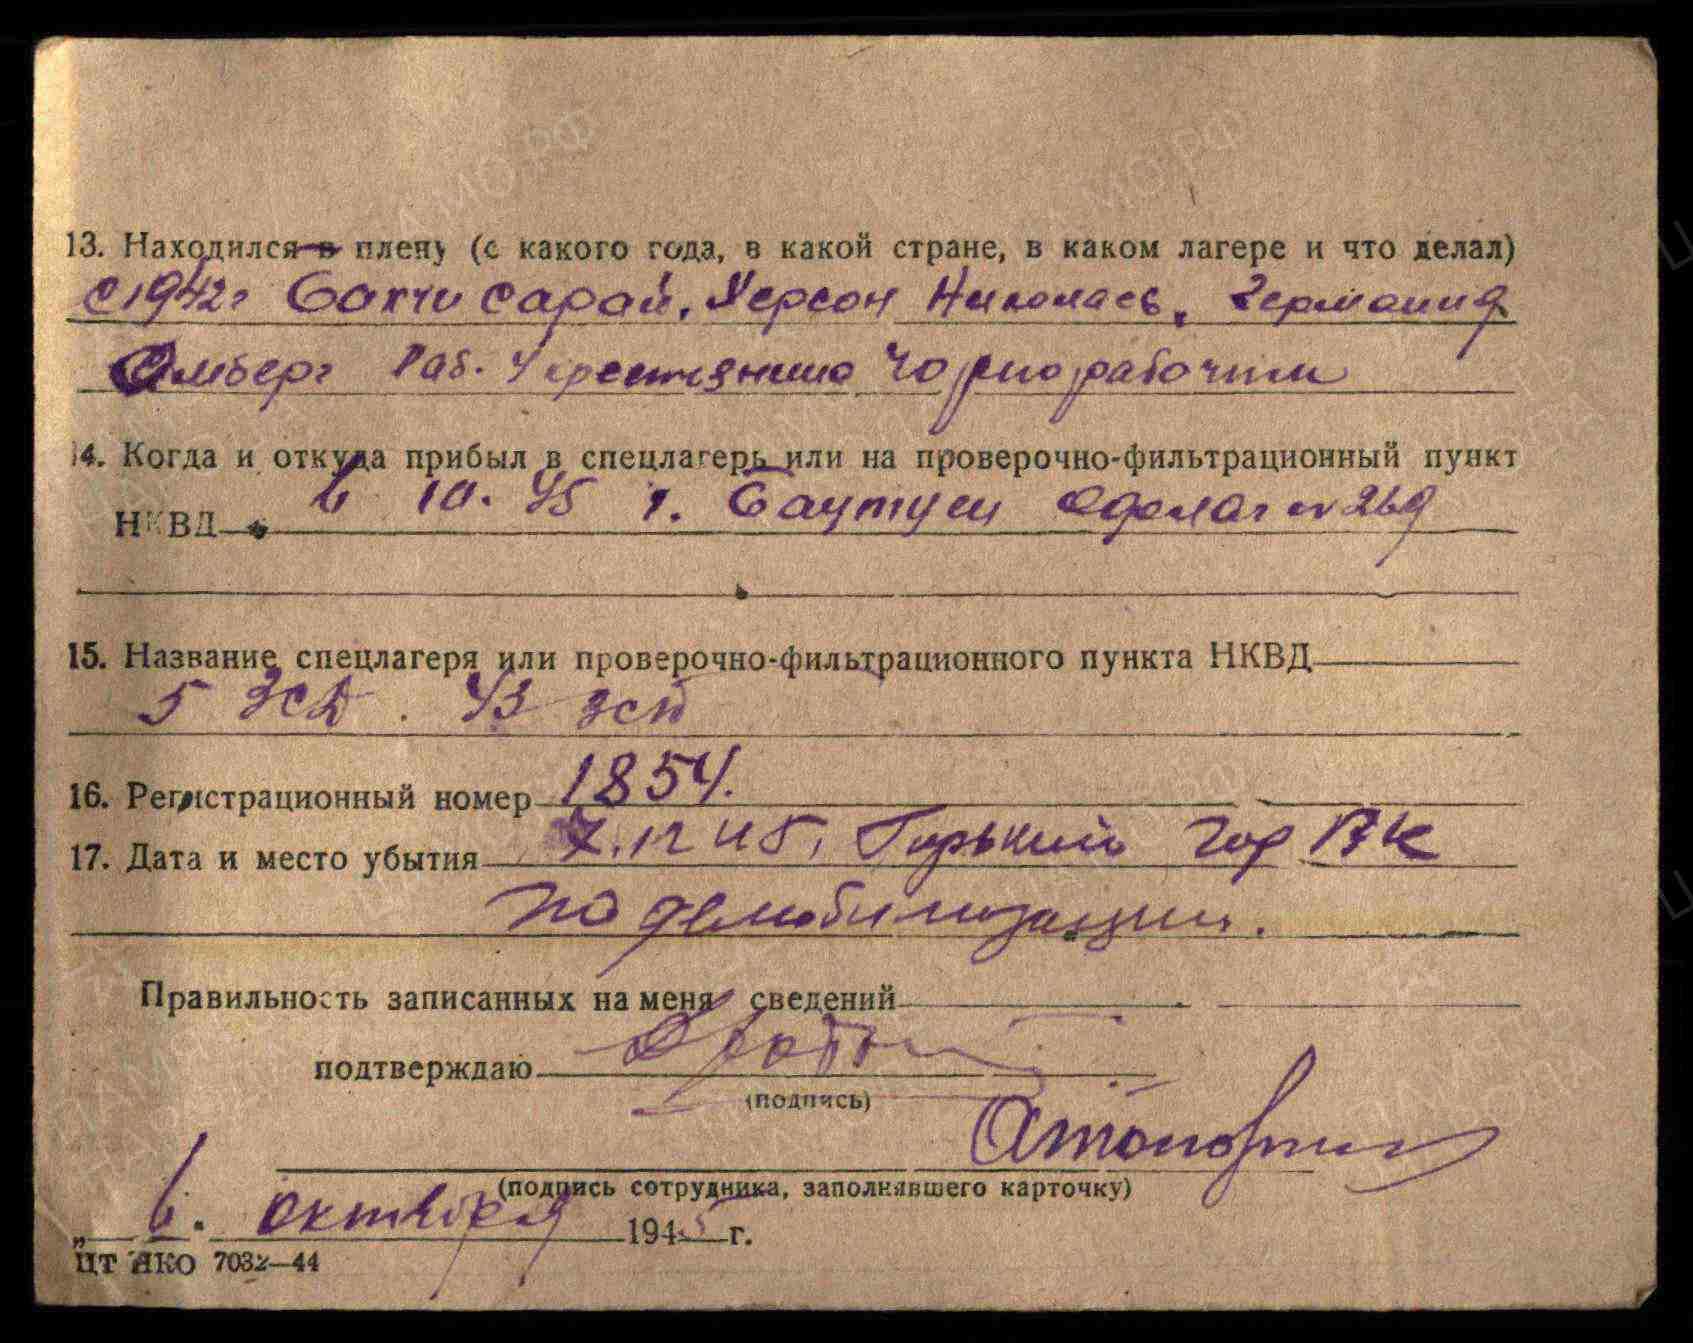 13. Находился в плену (с какого года, в какой стране, в каком лагере и что делал)
с 1942г Бахчи сарай, Херсон Николаев, Германия
Амберг Раб. у крестянина Чорно рабочим
14. Когда и откуда прибыл в спецлагерь или на проверочно-фильтрационный пункт
НКВД 6 10. 45 г. Баутцен 269
15. Название спецлагеря или проверочно-фильтрационного пункта НКВД
5 ЗСД. 43 зсп
16. Регистрационный номер 1854.
17. Дата и место убытия 7.12 45, Горький Гор ВК
по демобилизации.
Правильность записанных на меня сведений
подтверждаю
(подпись)
(подпись сотрудника, заполнявшего карточку)
„ 6. октября 1945 г.
ЦТ НКО 7032—44